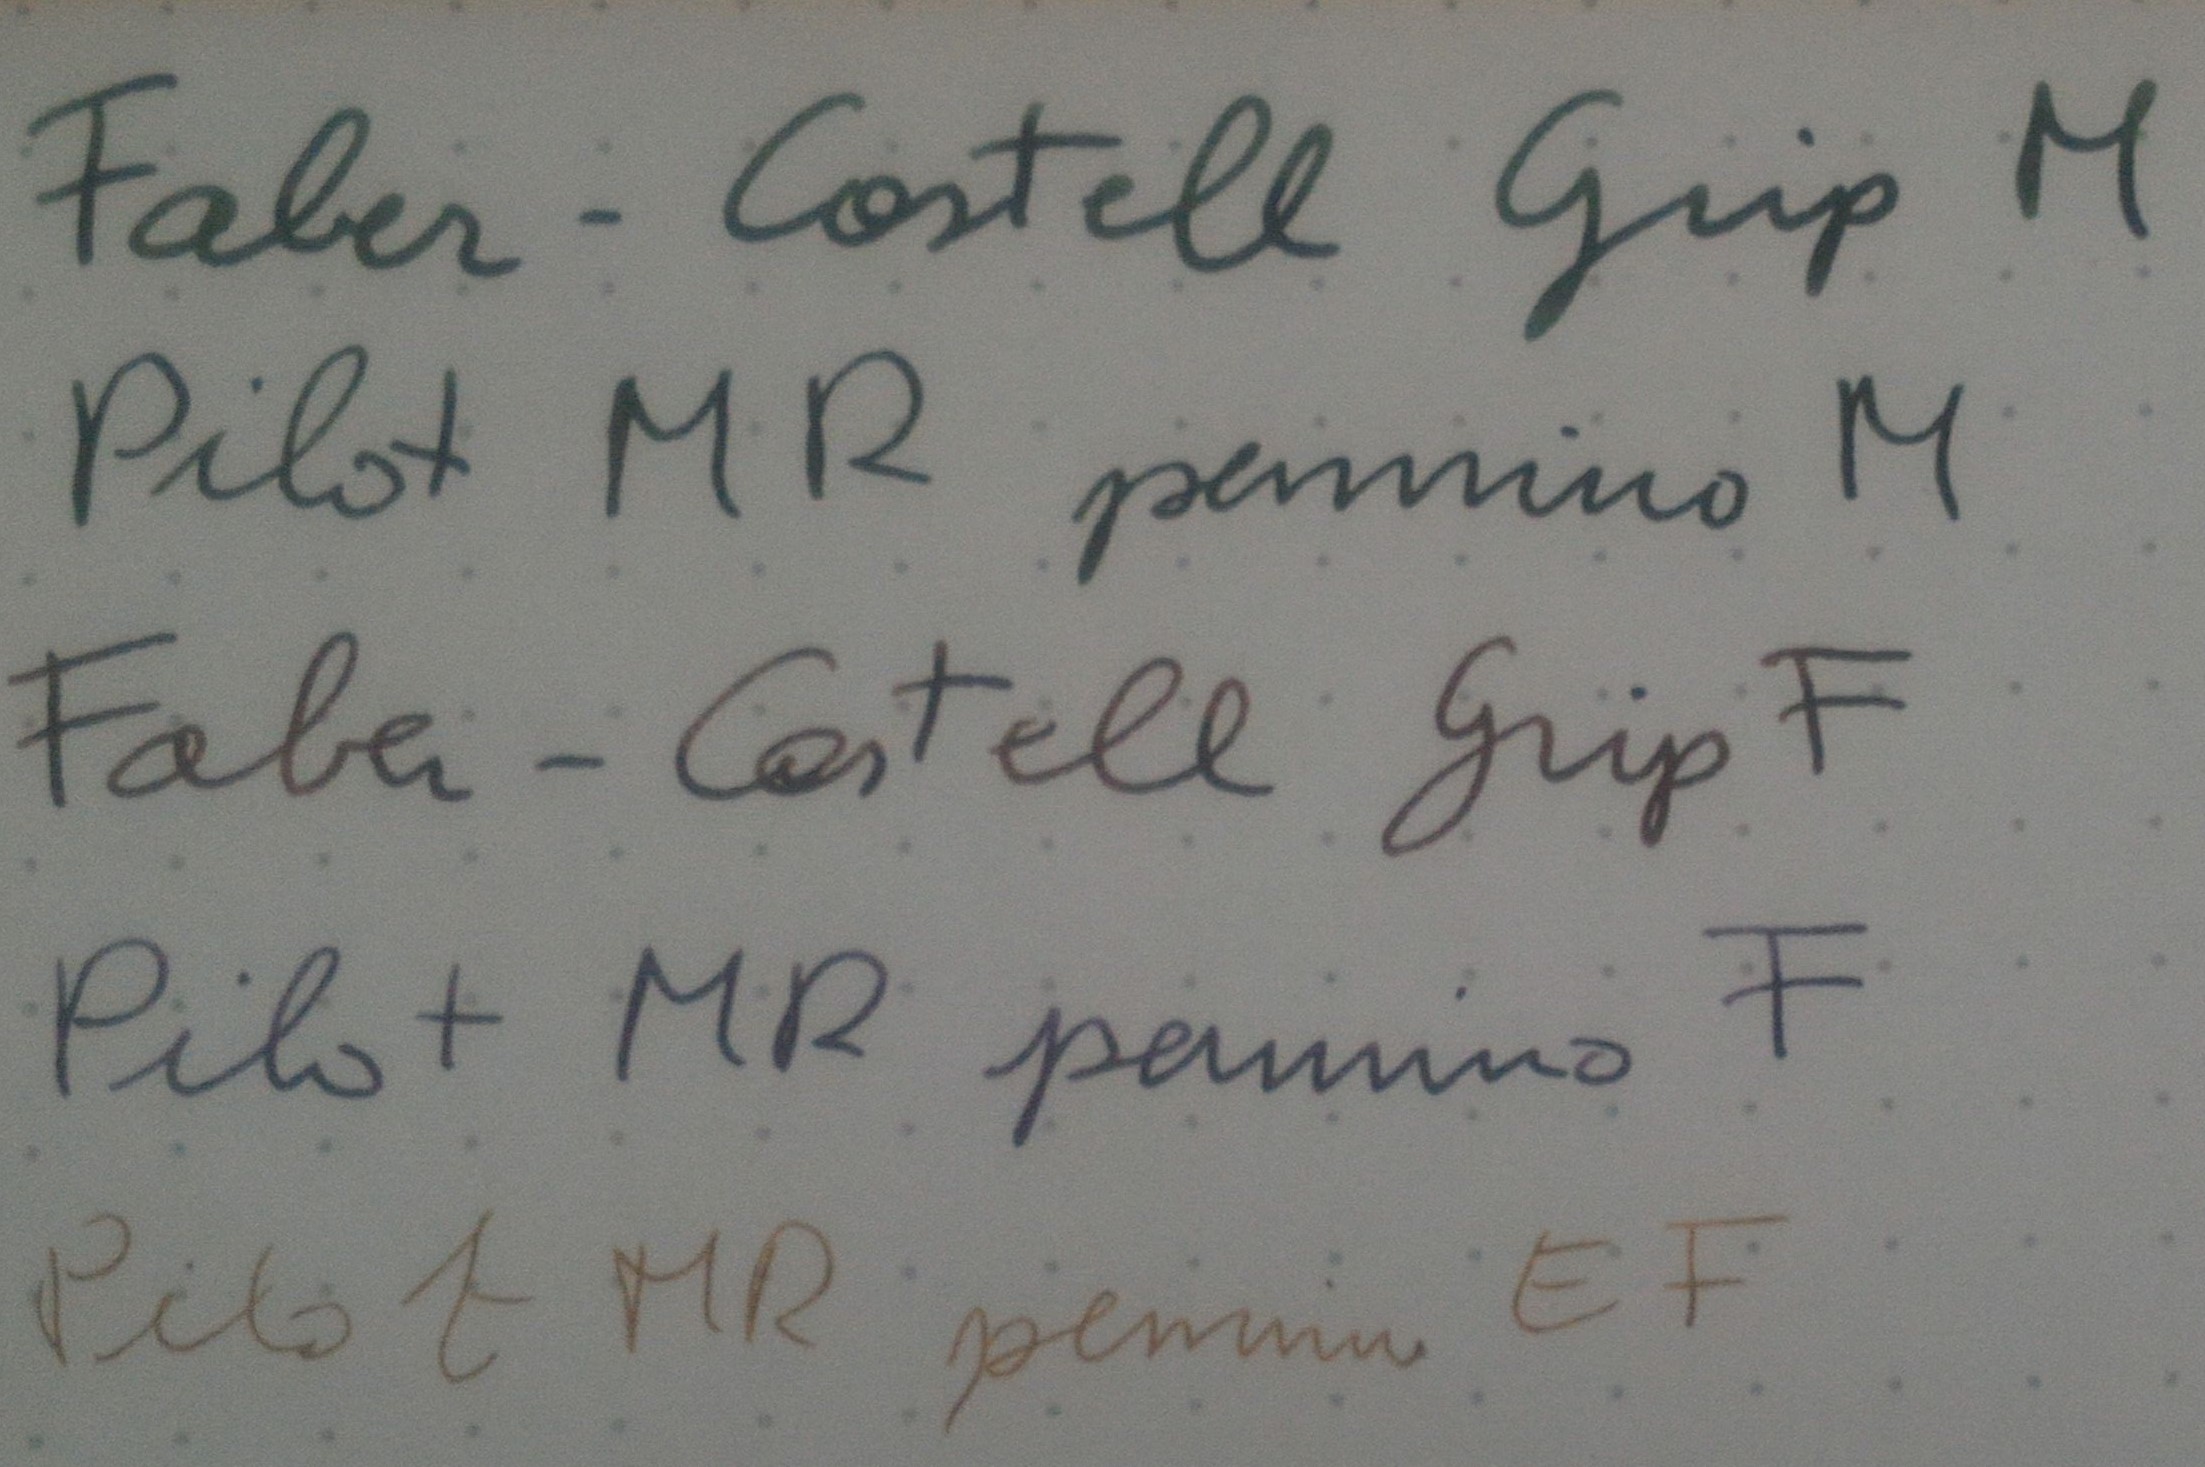 Faber - Castell Grip M
Pilot MR pennino M
Faber - Castell Grip F
Pilot MR pennino F
Pilot MR pennino EF